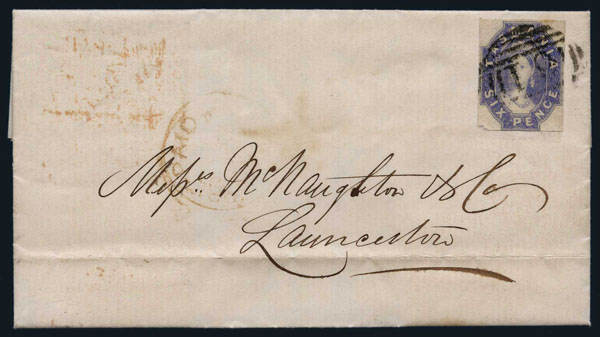 TASMANIA
SIX PENCE
PAID
Mess.rs McNaughton & Co
Launceston